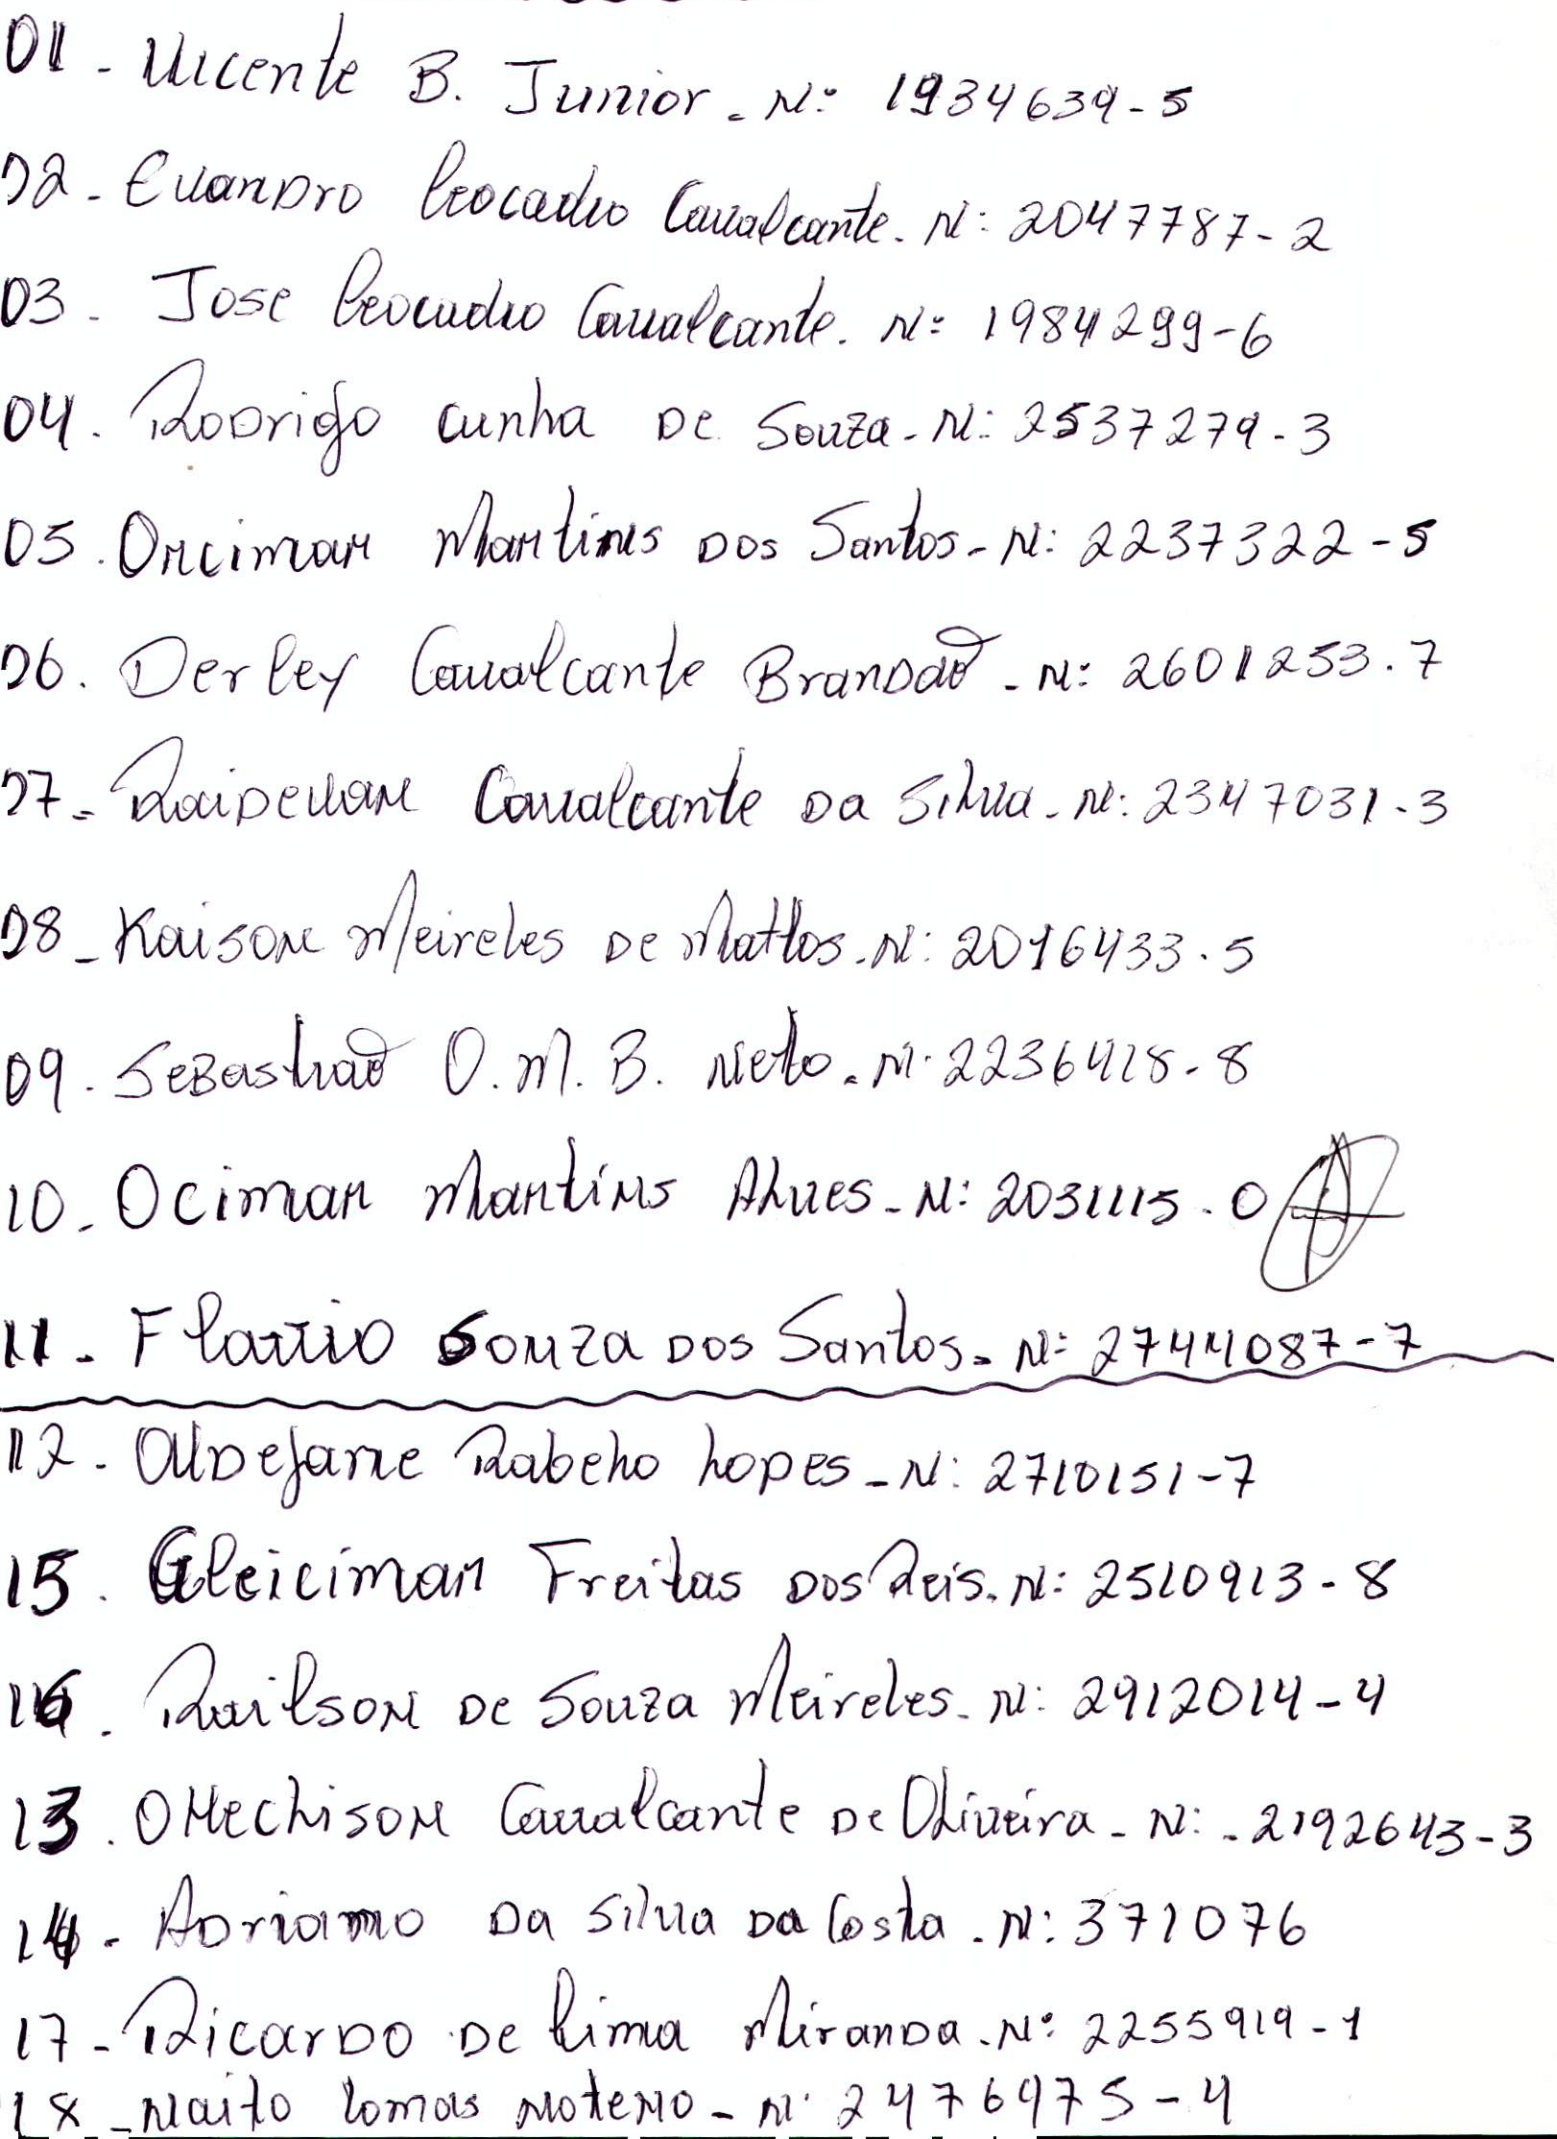 01 - Vicente B. Junior - N: 1934639-5
02 - Evandro Leocadio Cavalcante - N: 2047787-2
03 - Jose Leocadio Cavalcante - N: 1984299-6
04 - Rodrigo Cunha De Souza - N: 2537279-3
05 - Orcimar Martins Dos Santos - N: 2237322-5
06 - Derley Cavalcante Brandão - N: 2601253.7
07 - Raidevan Cavalcante Da Silva - N: 2347031-3
08 - Kaison Meireles De Mattos - N: 2016433.5
09 - Sebastião O. M. B. Neto - N: 2236418-8
10 - Ocimar Martins Alves - N: 2031115.0
11 - Flavio Souza Dos Santos - N: 2744087-7
12 - Aldejane Rabelo Lopes - N: 2710151-7
15 . Gleicimar Freitas Dos Reis - N: 2510913-8
16 . Railson De Souza Meireles - N: 2912014-4
13 . Chechison Cavalcante De Oliveira - N: - 2192643-3
14 - Adriano Da Silva Da Costa - N: 371076
17 - Ricardo De Lima Miranda - N: 2255919-1
18 - Lomas - N: 2476975-4